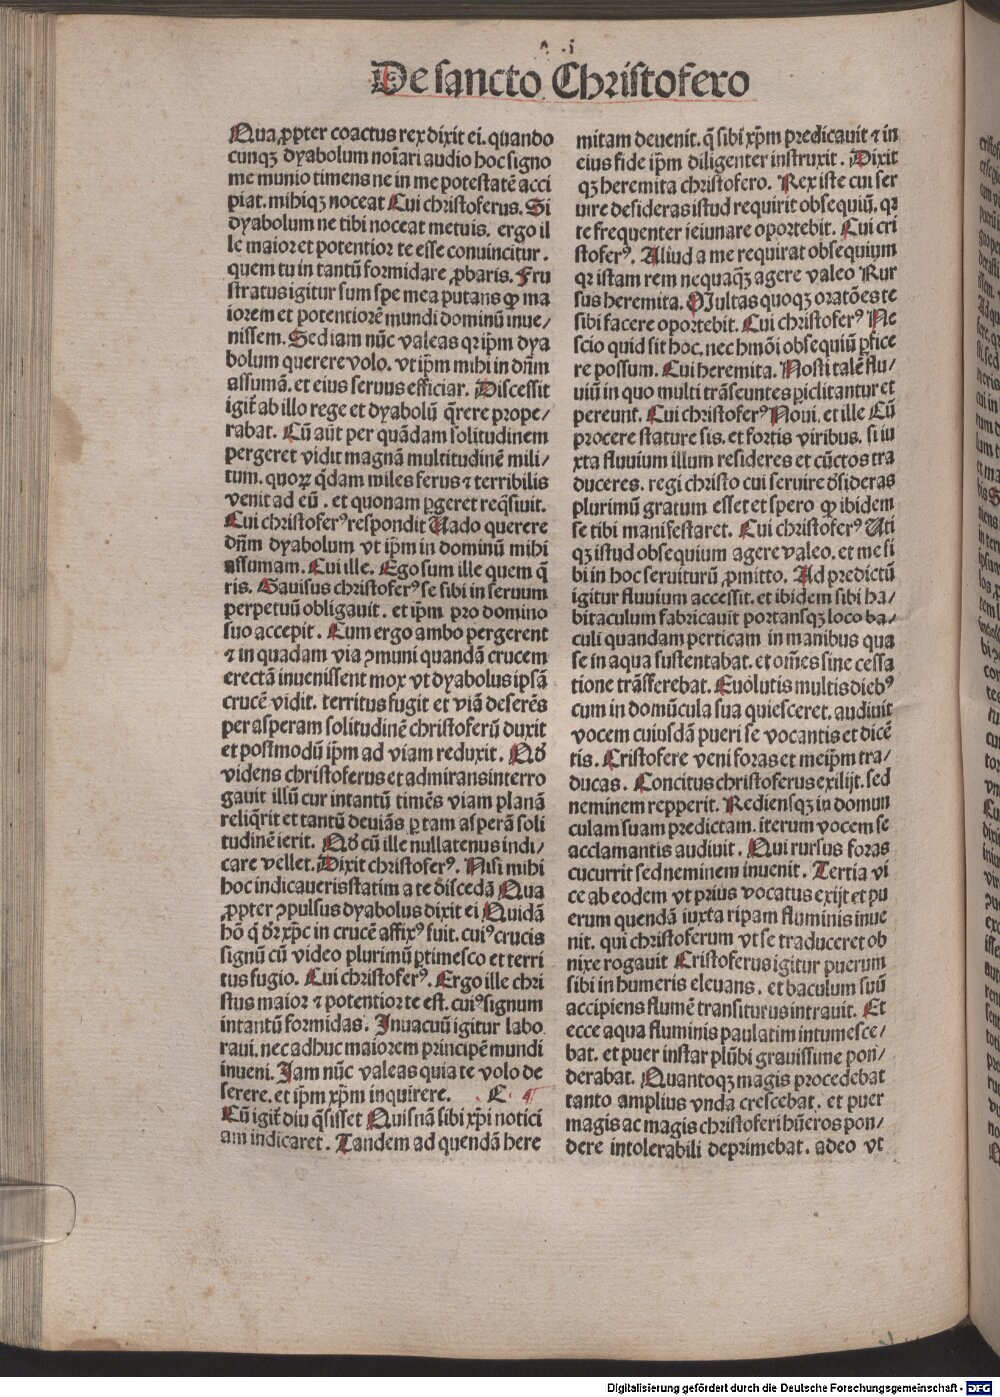 De sancto Christofero
Qua ꝓpter coactus rex dixit ei. quando
cunqꝫ dyabolum noīari audio hoc signo
me munio timens ne in me potestatē acci
piat. mihiqꝫ noceat Cui christoferus. Si
dyabolum ne tibi noceat metuis. ergo il
le maior et potentior te esse conuincitur.
quem tu in tantū formidare ꝓbaris. Fru
stratus igitur sum spe mea putans ꝙ ma
iorem et potentiorē mundi dominū inue/
nissem. Sed iam nūc valeas qꝛ ip̄m dya
bolum querere volo. vt ip̄m mihi in dn̄m
assumā. et eius seruus efficiar. Discessit
igit̄ ab illo rege et dyabolū q̄rere prope/
rabat. Cū aūt per quādam solitudinem
pergeret vidit magnā multitudinē mili/
tum. quoꝝ q̇dam miles ferus ⁊ terribilis
venit ad eū. et quonam ꝑgeret req̇siuit.
Cui christoferꝰ respondit Uado querere
dn̄m dyabolum vt ip̄m in dominū mihi
assumam. Cui ille. Ego sum ille quem q̄
ris. Gauisus christoferꝰ se sibi in seruum
perpetuū obligauit. et ip̄m pro domino
suo accepit. Cum ergo ambo pergerent
⁊ in quadam via ꝯmuni quandā crucem
erectā inuenissent mox vt dyabolus ipsā
crucē vidit. territus fugit et viā deserēs
per asperam solitudinē christoferū duxit
et postmodū ip̄m ad viam reduxit. Qđ
videns christoferus et admirans interro
gauit illū cur intantū timēs viam planā
reliq̇rit et tantū deuiās ꝑ tam asperā soli
tudinē ierit. Qđ cū ille nullatenus indi/
care vellet. Dixit christoferꝰ. Nisi mihi
hoc indicaueris statim a te discedā Qua
ꝓpter ꝯpulsus dyabolus dixit ei Quidā
hō q̇ dr̄ xp̄c in crucē affixꝰ fuit. cuiꝰ crucis
signū cū video plurimū ꝑtimesco et terri
tus fugio. Cui christoferꝰ. Ergo ille chri
stus maior ⁊ potentior te est. cuiꝰ signum
intantū formidas. Inuacuū igitur labo
raui. nec adhuc maiorem principē mundi
inueni. Iam nūc valeas quia te volo de
serere. et ip̄m xp̄m inquirere. C.
Cū igit̄ diu q̄sisset Quisnā sibi xp̄i notici
am indicaret. Tandem ad quendā here
mitam deuenit. q̇ sibi xp̄m predicauit ⁊ in
eius fide ip̄m diligenter instruxit. Dixit
qꝫ heremita christofero. Rex iste cui ser
uire desideras istud requirit obsequiū. qꝛ
te frequenter ieiunare oportebit. Cui cri
stoferꝰ. Aliud a me requirat obsequium
qꝛ istam rem nequaqꝫ agere valeo Rur
sus heremita. Multas quoqꝫ oratōes te
sibi facere oportebit. Cui christoferꝰ Ne
scio quid sit hoc. nec hmōi obsequiū ꝑfice
re possum. Cui heremita. Nosti talē flu/
uiū in quo multi trāseuntes ꝑiclitantur et
pereunt. Cui christoferꝰ Noui. et ille Cū
procere stature sis. et fortis viribus. si iu
xta fluuium illum resideres et cūctos tra
duceres. regi christo cui seruire desideras
plurimū gratum esset et spero ꝙ ibidem
se tibi manifestaret. Cui christoferꝰ Uti
qꝫ istud obsequium agere valeo. et me si
bi in hoc seruiturū ꝓmitto. Ad predictū
igitur fluuium accessit. et ibidem sibi ha/
bitaculum fabricauit portansqꝫ loco ba/
culi quandam perticam in manibus qua
se in aqua sustentabat. et om̄es sine cessa
tione trāsferebat. Euolutis multis diebꝰ
cum in domūcula sua quiesceret. audiuit
vocem cuiusdā pueri se vocantis et dicē
tis. Cristofere veni foras et meip̄m tra/
ducas. Concitus christoferus exilijt. sed
neminem repperit. Rediensqꝫ in domun
culam suam predictam. iterum vocem se
acclamantis audiuit. Qui rursus foras
cucurrit sed neminem inuenit. Tertia vi
ce ab eodem vt prius vocatus exijt et pu
erum quendā iuxta ripam fluminis inue
nit. qui christoferum vt se traduceret ob
nixe rogauit Cristoferus igitur puerum
sibi in humeris eleuans. et baculum suū
accipiens flumē transiturus intrauit. Et
ecce aqua fluminis paulatim intumesce/
bat. et puer instar plūbi grauissime pon/
derabat. Quantoqꝫ magis procedebat
tanto amplius vnda crescebat. et puer
magis ac magis christoferi hūeros pon/
dere intolerabili deprimebat. adeo vt
Digitalisierung gefördert durch die Deutsche Forschungsgemeinschaft - DFG